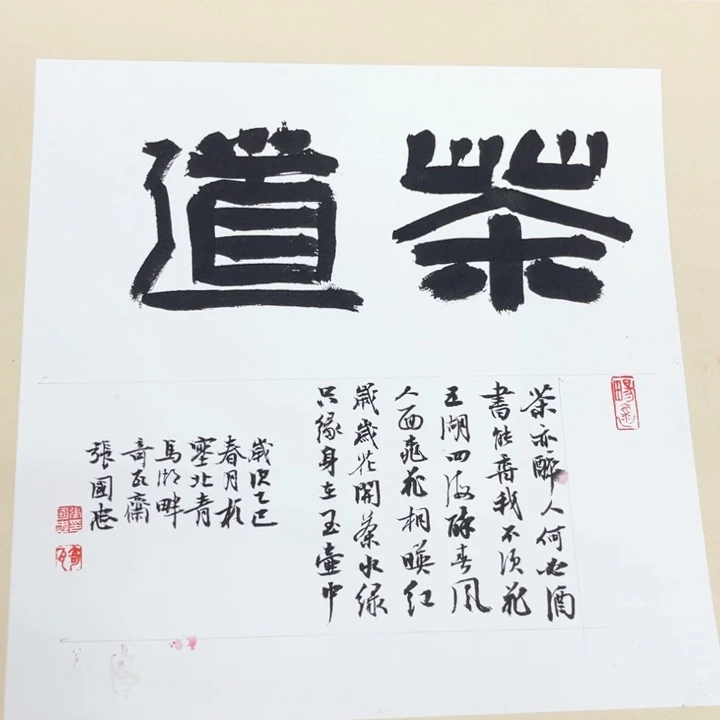 茶道
茶亦醉人何必酒
書能香我不須花
五湖四海醉春風
人面飛花相暎红
歲歲花開茶水緑
只緣身在玉壺中
歲次乙巳
春月於
塞北青
馬湖畔
奇瓦齋
張國